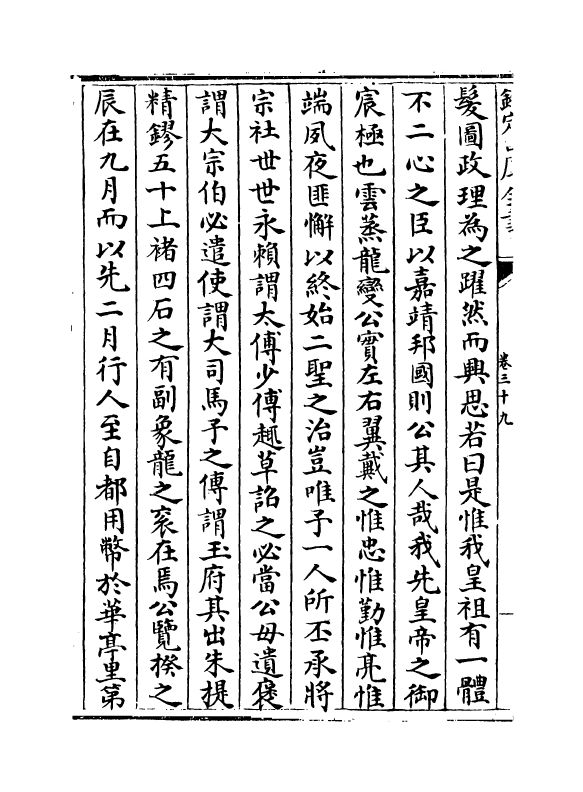 卷三十九
髮圖政理為之躍然而興思若曰是惟我皇祖有一體
不二心之臣以嘉靖邦國則公其人哉我先皇帝之御
宸極也雲蒸龍變公實左右翼戴之惟忠惟勤惟亮惟
端夙夜匪懈以終始二聖之治豈唯予一人所丕承將
宗社世世永賴謂太傅少傅趣草詔之必當公毋遺褒
謂大宗伯必遣使謂大司馬予之傳謂玉府其出朱提
精鏐五十上褚四石之有副象龍之衮在焉公覽揆之
辰在九月而以先二月行人至自都用幣於華亭里第